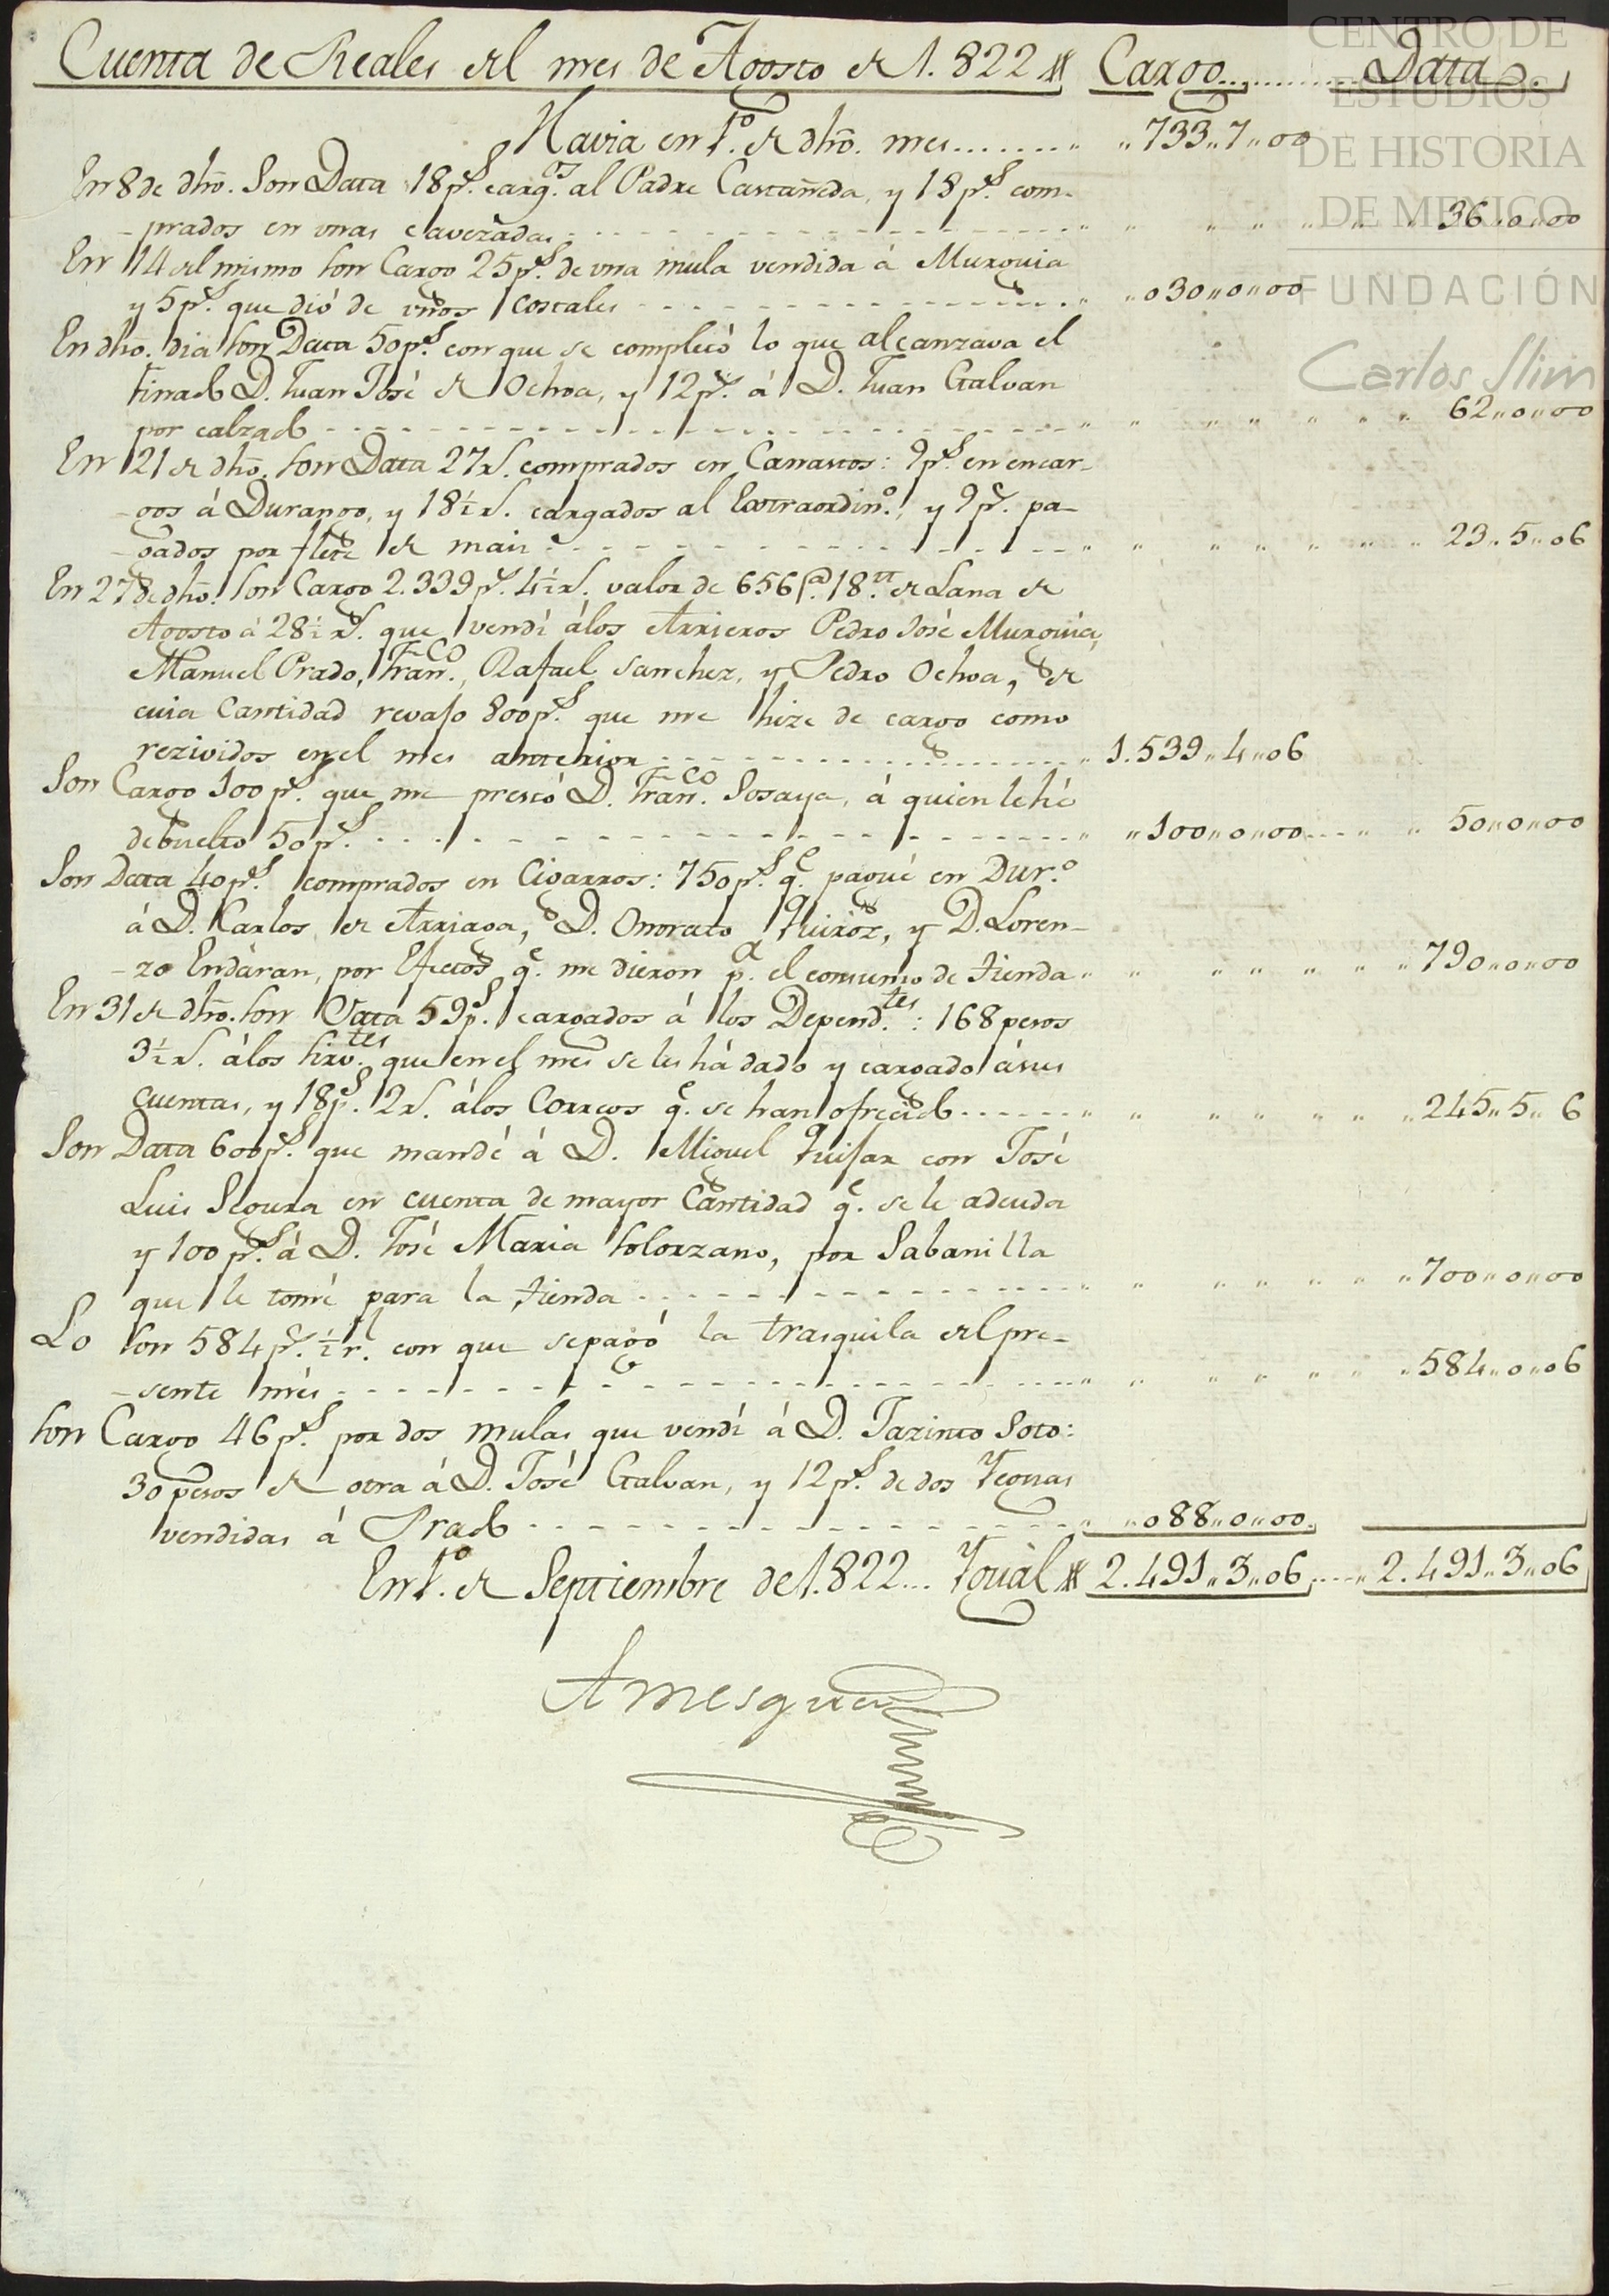 CENTRO DE
ESTUDIOS
DE HISTORIA
DE MEXICO
FUNDACIÓN
Carlos Slim
Cuenta de Reales del mes de Agosto de 1.822 Cargo......... Data.
Havia en 1º. de dhõ. mes........ 733,,7,,00
En 8 de dhõ. Son Data 18pˢ. cargˢ. al Padre Castañeda, y 18pˢ. com-
-prados en unas cavezadas 36,,0,,00
En 14 del mismo son Cargo 25pˢ. de una mula vendida á Murguia
y 5pˢ. que dió de unos costales 030,,0,,00
En dho. dia son Data 50pˢ. con que se completó lo que alcanzava el
Finado D. Juan José de Ochoa, y 12pˢ. á D. Juan Galvan
por calzado 62,,0,,00
En 21 de dhõ. son Data 27 rˢ. comprados en Canastos: 9pˢ. en encar-
-gos á Durango, y 18½ rˢ. cargados al Extraordinº., y 9pˢ. pa-
-gados por flete de mais 23,,5,,06
En 27 de dhõ. son Cargo 2.339pˢ. 4½ rˢ. valor de 656 @. 18 tt. de Lana de
Agosto á 28½ rˢ. que vendi álos Arrieros Pedro José Murguia,
Manuel Prado, Franᶜᵒ., Rafael Sanchez, y Pedro Ochoa, de
cuia Cantidad revajo 800pˢ. que me hize de cargo como
rezividos en el mes anterior 1.539,,4,,06
Son Cargo 100pˢ. que me prestó D. Franᶜᵒ. Sosaya, á quien le hé
debuelto 50pˢ. 100,,0,,00 50,,0,,00
Son Data 40pˢ. comprados en Cigarros: 750pˢ. qᵉ. pagué en Durº
á D. Karlos de Arriaga, D. Onorato Quiroz, y D. Loren-
-zo Endáran, por Efectos qᵉ. me dieron pᵃ. el consumo de tienda 790,,0,,00
En 31 de dhõ. son Data 59pˢ. cargados á los Dependᵗᵉˢ.: 168 pesos
3½ rˢ. álos Sirvᵗᵉˢ. que en el mes se les há dado y cargado ásus
cuentas, y 18pˢ. 2 rˢ. álos Correos qᵉ. se han ofrecido 245,,5,,6
Son Data 600pˢ. que mandé á D. Miguel Quijar con José
Luis Segura en cuenta de mayor Cantidad qᵉ. se le adeuda
y 100pˢ. á D. José Maria Solorzano, por Sabanilla
que le tomé para la tienda 700,,0,,00
Lo son 584pˢ. ½ rˡ. con que se pagó la trasquila del pre-
-sente més 584,,0,,06
Son Cargo 46pˢ. por dos mulas que vendí á D. Jazinto Soto:
30 pesos de otra á D. José Galvan, y 12pˢ. de dos Yeguas
vendidas á Prado 088,,0,,00
En 1º. de Septiembre de 1.822... Ygual 2.491,,3,,06 2.491,,3,,06
Amesqua